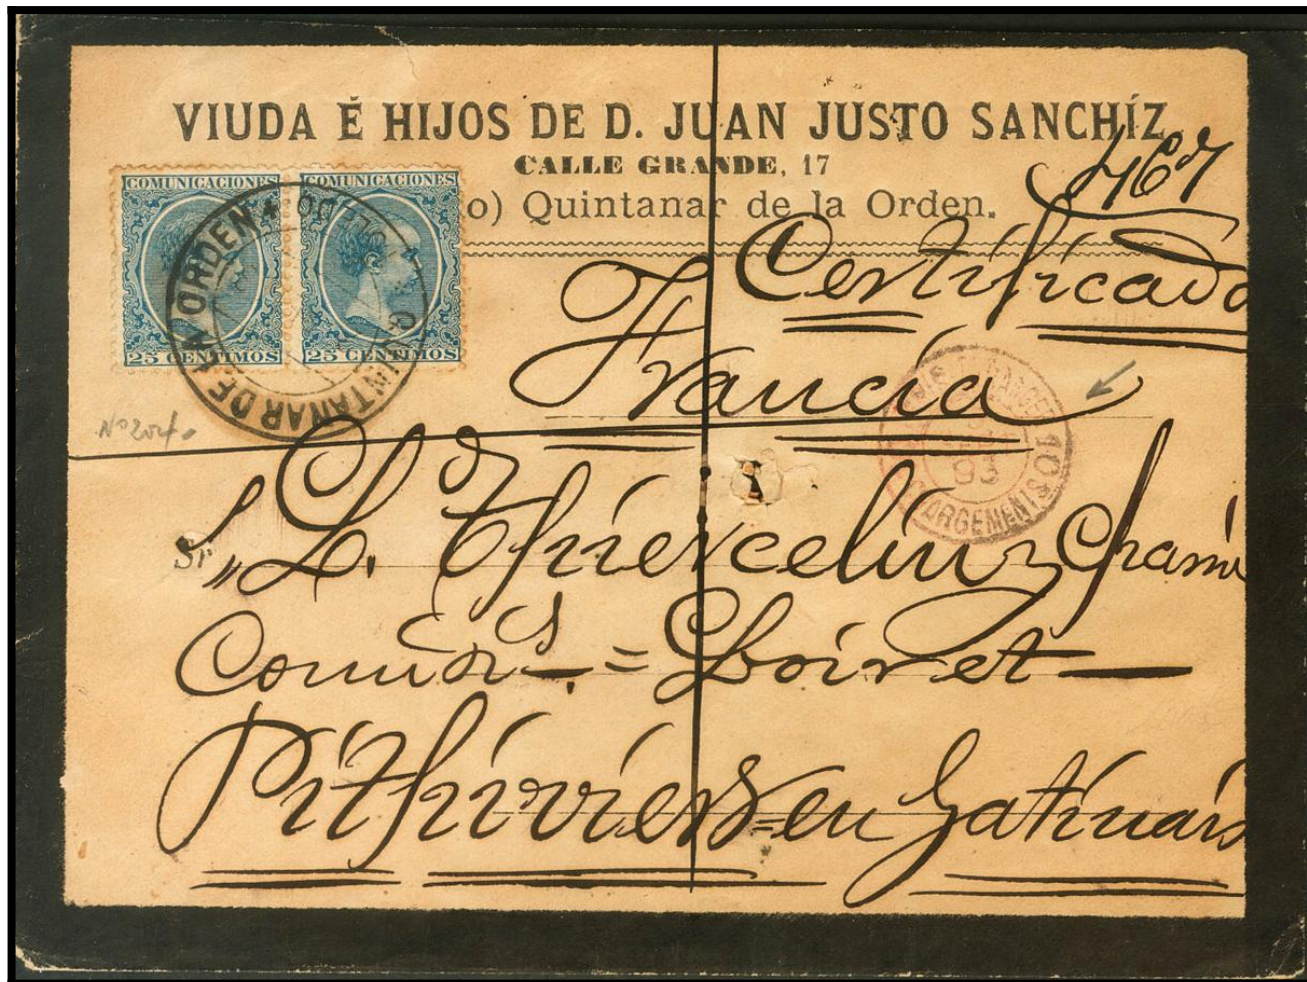 VIUDA É HIJOS DE D. JUAN JUSTO SANCHÍZ
CALLE GRANDE, 17
o) Quintanar de la Orden.
467
COMUNICACIONES COMUNICACIONES
25 CENTIMOS 25 CENTIMOS
QUINTANAR DE LA ORDEN
TOLEDO
Certificado
Francia
93
CHARGEMENTS
10
Sr L. Thiercelin
= Loiret —
Pithiviers = en Gatinais